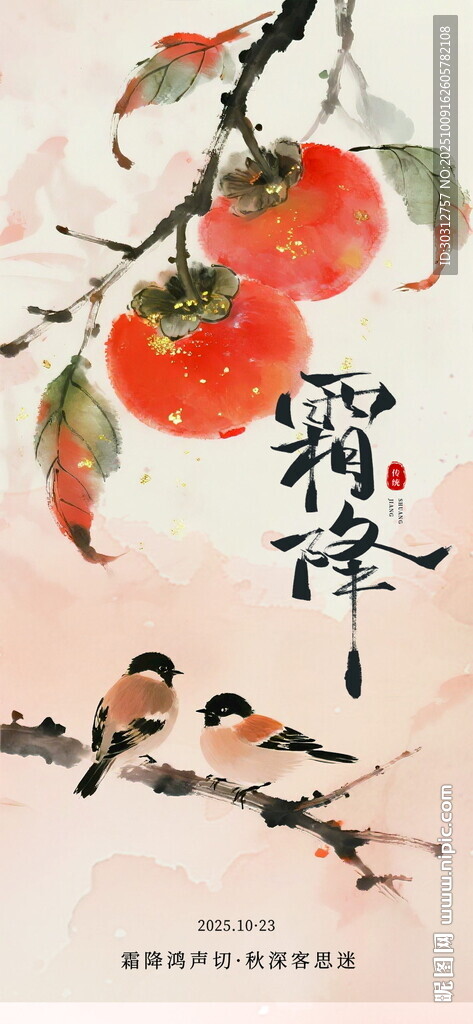 霜降
传统
SHUANG
JIANG
2025.10·23
霜降鸿声切·秋深客思迷
ID:30312757 NO:20251009162605782108
昵图网 www.nipic.com